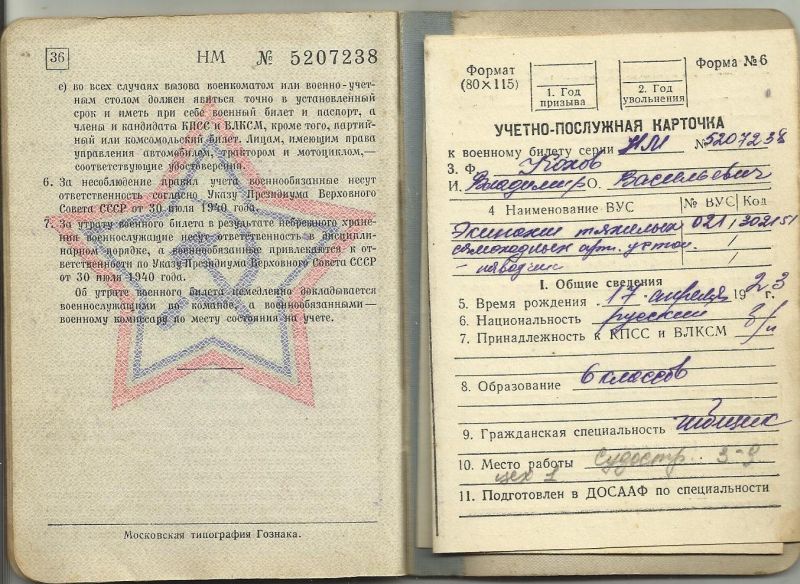 36
НМ № 5207238
е) во всех случаях вызова военкоматом или военно-учет-
ным столом должен явиться точно в установленный
срок и иметь при себе военный билет и паспорт, а
члены и кандидаты КПСС и ВЛКСМ, кроме того, партий-
ный или комсомольский билет. Лицам, имеющим права
управления автомобилем, трактором и мотоциклом,—
соответствующие удостоверения.
6. За несоблюдение правил учета военнообязанные несут
ответственность согласно Указу Президиума Верховного
Совета СССР от 30 июля 1940 года.
7. За утрату военного билета в результате небрежного хране-
ния военнослужащие несут ответственность в дисципли-
нарном порядке, а военнообязанные привлекаются к от-
ветственности по Указу Президиума Верховного Совета СССР
от 30 июля 1940 года.
Об утрате военного билета немедленно докладывается
военнослужащими по команде, а военнообязанными —
военному комиссару по месту состояния на учете.
Московская типография Гознака.
Формат
(80×115)
1. Год
призыва
2. Год
увольнения
Форма № 6
УЧЕТНО-ПОСЛУЖНАЯ КАРТОЧКА
к военному билету серии НМ № 5207238
3. Ф
И. Владимир О. Васильевич
4 Наименование ВУС № ВУС Код
Экипажи тяжелых 021
самоходных арт. устан.
— наводчик
I. Общие сведения
5. Время рождения 17 апреля 1923 г.
6. Национальность русский
7. Принадлежность к КПСС и ВЛКСМ б/п
8. Образование 6 классов
9. Гражданская специальность
10. Место работы Судостр. з-д
цех 1
11. Подготовлен в ДОСААФ по специальности